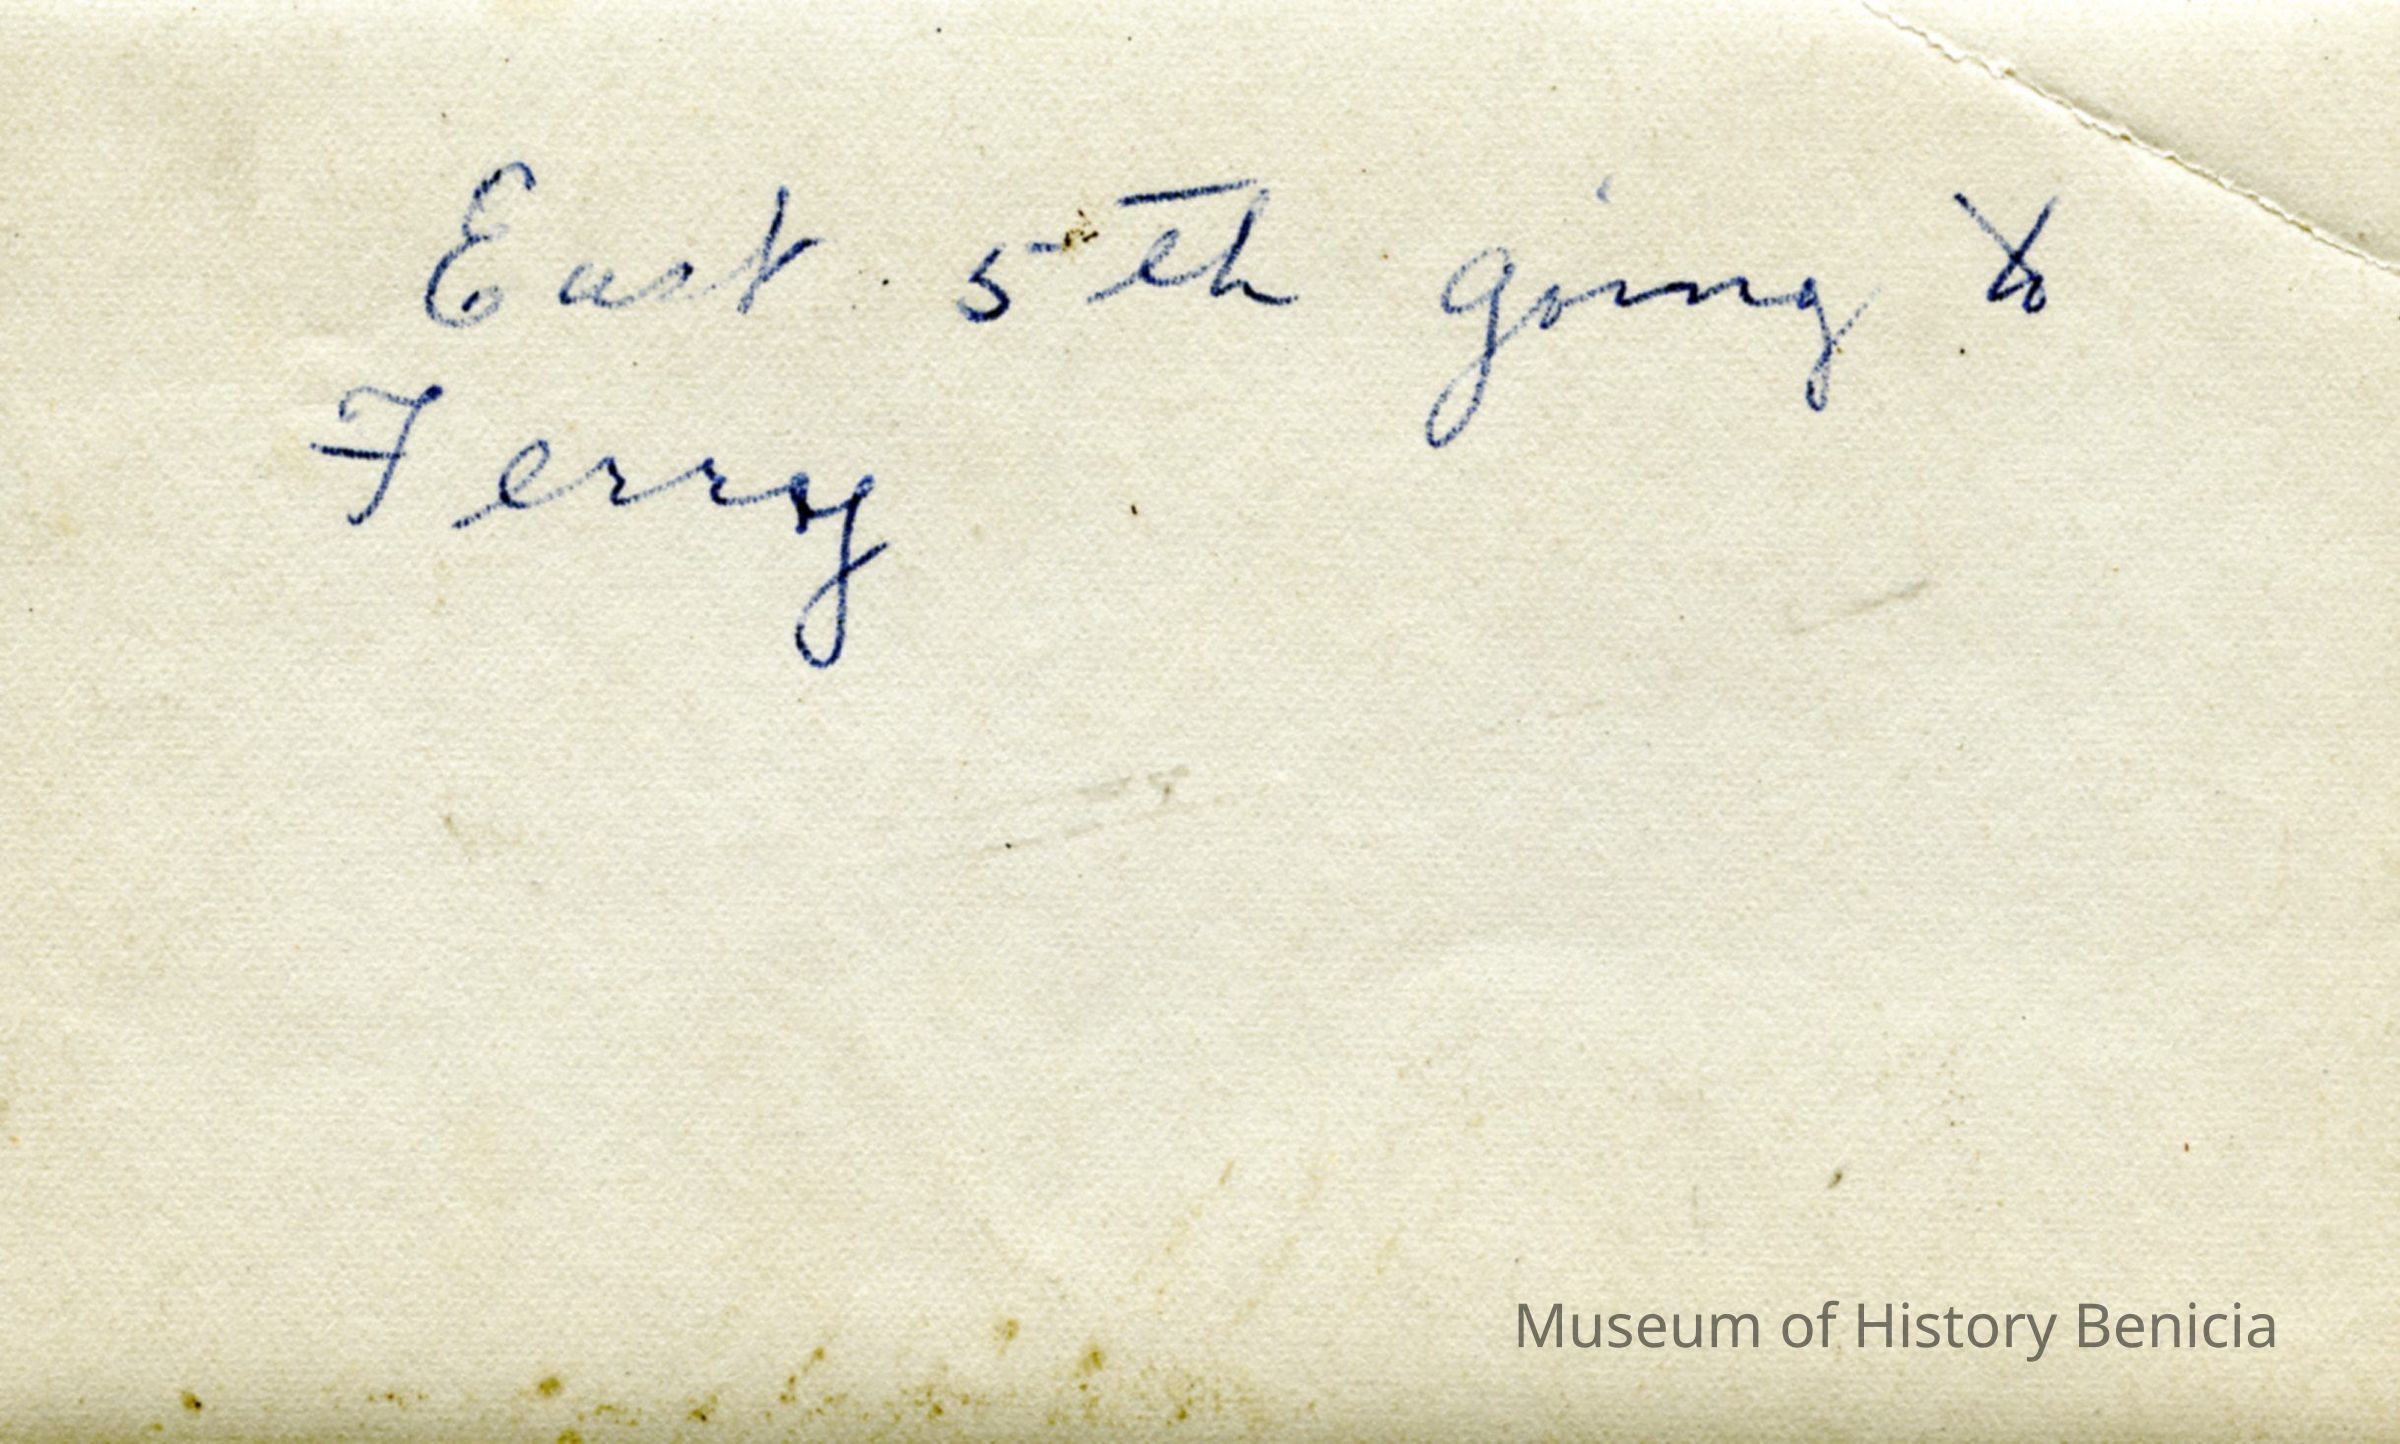 East 5th going to
Ferry
Museum of History Benicia